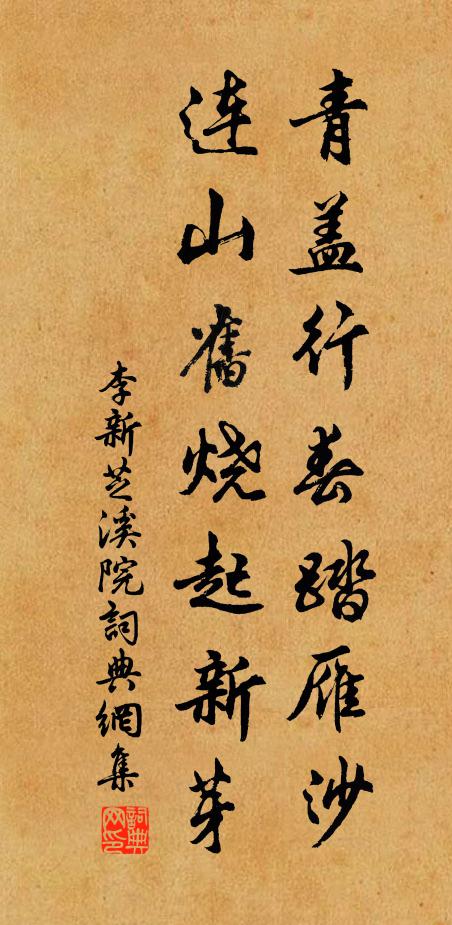 青盖行春踏雁沙
连山旧烧起新芽
李新芝溪院詞典網集
詞典网印